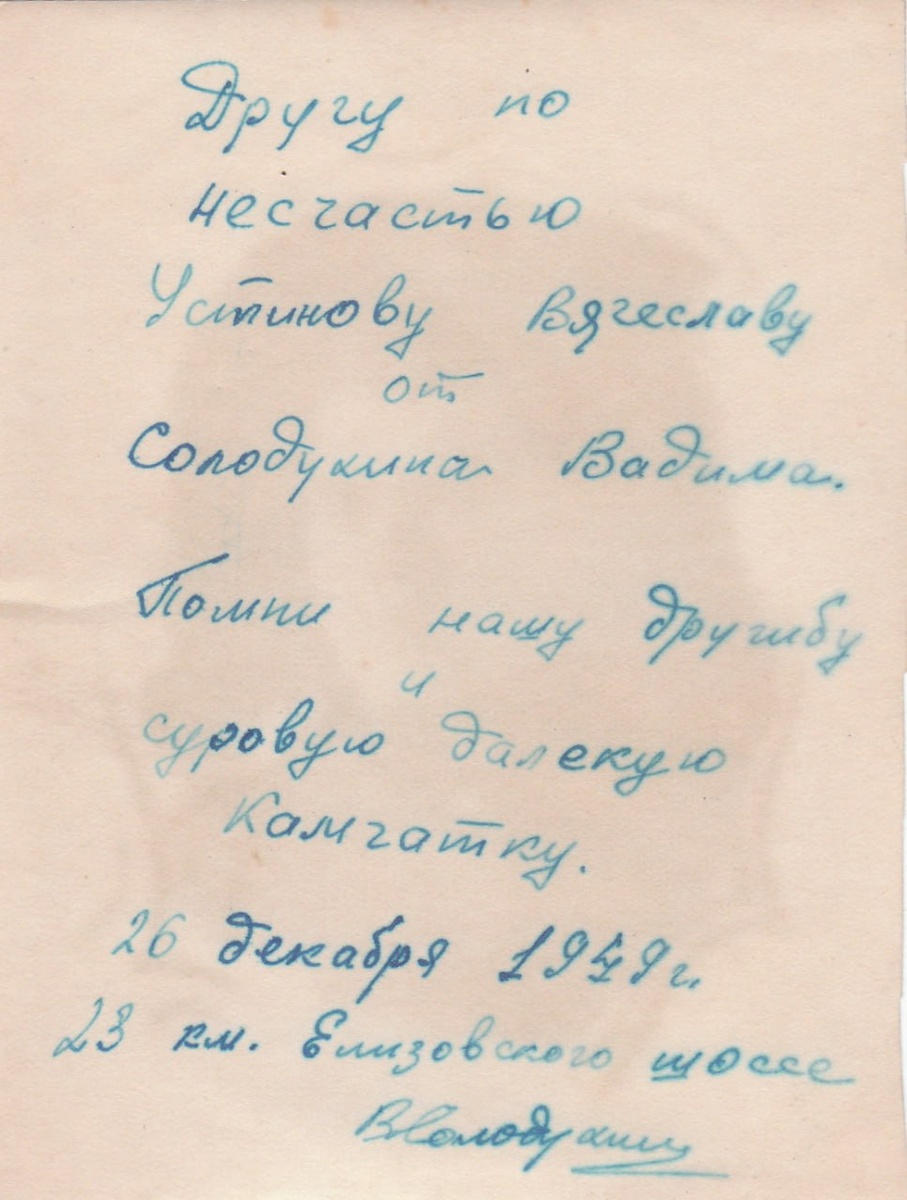 Другу по
несчастью
Устинову Вячеславу
от
Солодухина Вадима.
Помни нашу дружбу
и
суровую далекую
Камчатку.
26 декабря 1949г.
23 км. Елизовского шоссе
ВСолодухин